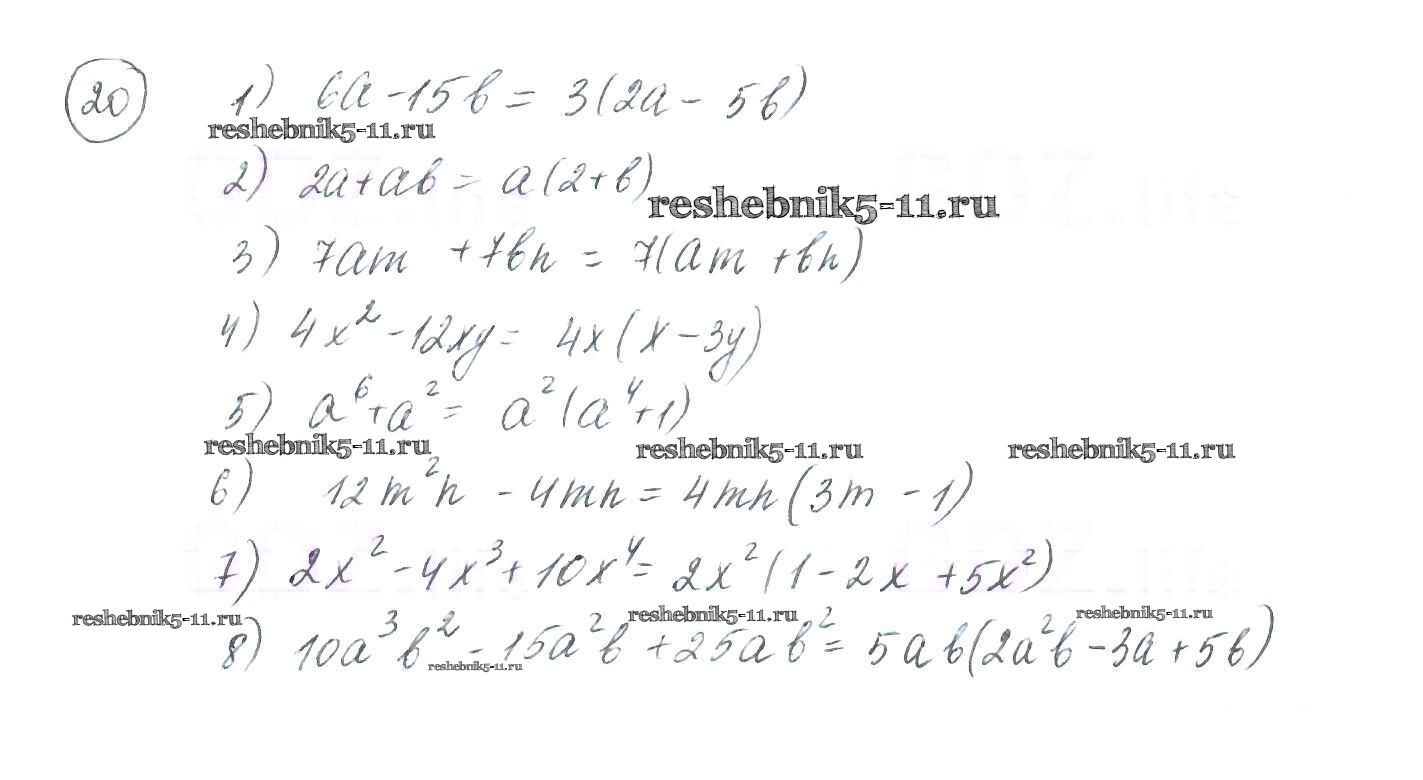 20 1) 6a - 15b = 3(2a - 5b)
reshebnik5-11.ru
2) 2a + ab = a(2 + b)
reshebnik5-11.ru
3) 7am + 7bn = 7(am + bn)
4) 4x² - 12xy = 4x(x - 3y)
5) a⁶ + a² = a²(a⁴ + 1)
reshebnik5-11.ru reshebnik5-11.ru reshebnik5-11.ru
6) 12m²n - 4mn = 4mn(3m - 1)
7) 2x² - 4x³ + 10x⁴ = 2x²(1 - 2x + 5x²)
reshebnik5-11.ru reshebnik5-11.ru reshebnik5-11.ru
8) 10a³b² - 15a²b + 25ab² = 5ab(2a²b - 3a + 5b)
reshebnik5-11.ru